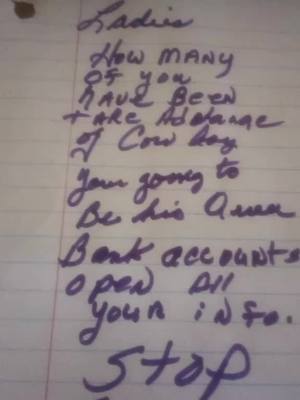 Ladies
How MANY
OF you
HAVE BEEN
+ ARE
of Cow boy
your going to
Be his Queen
Bank accounts
open All
your info.
Stop